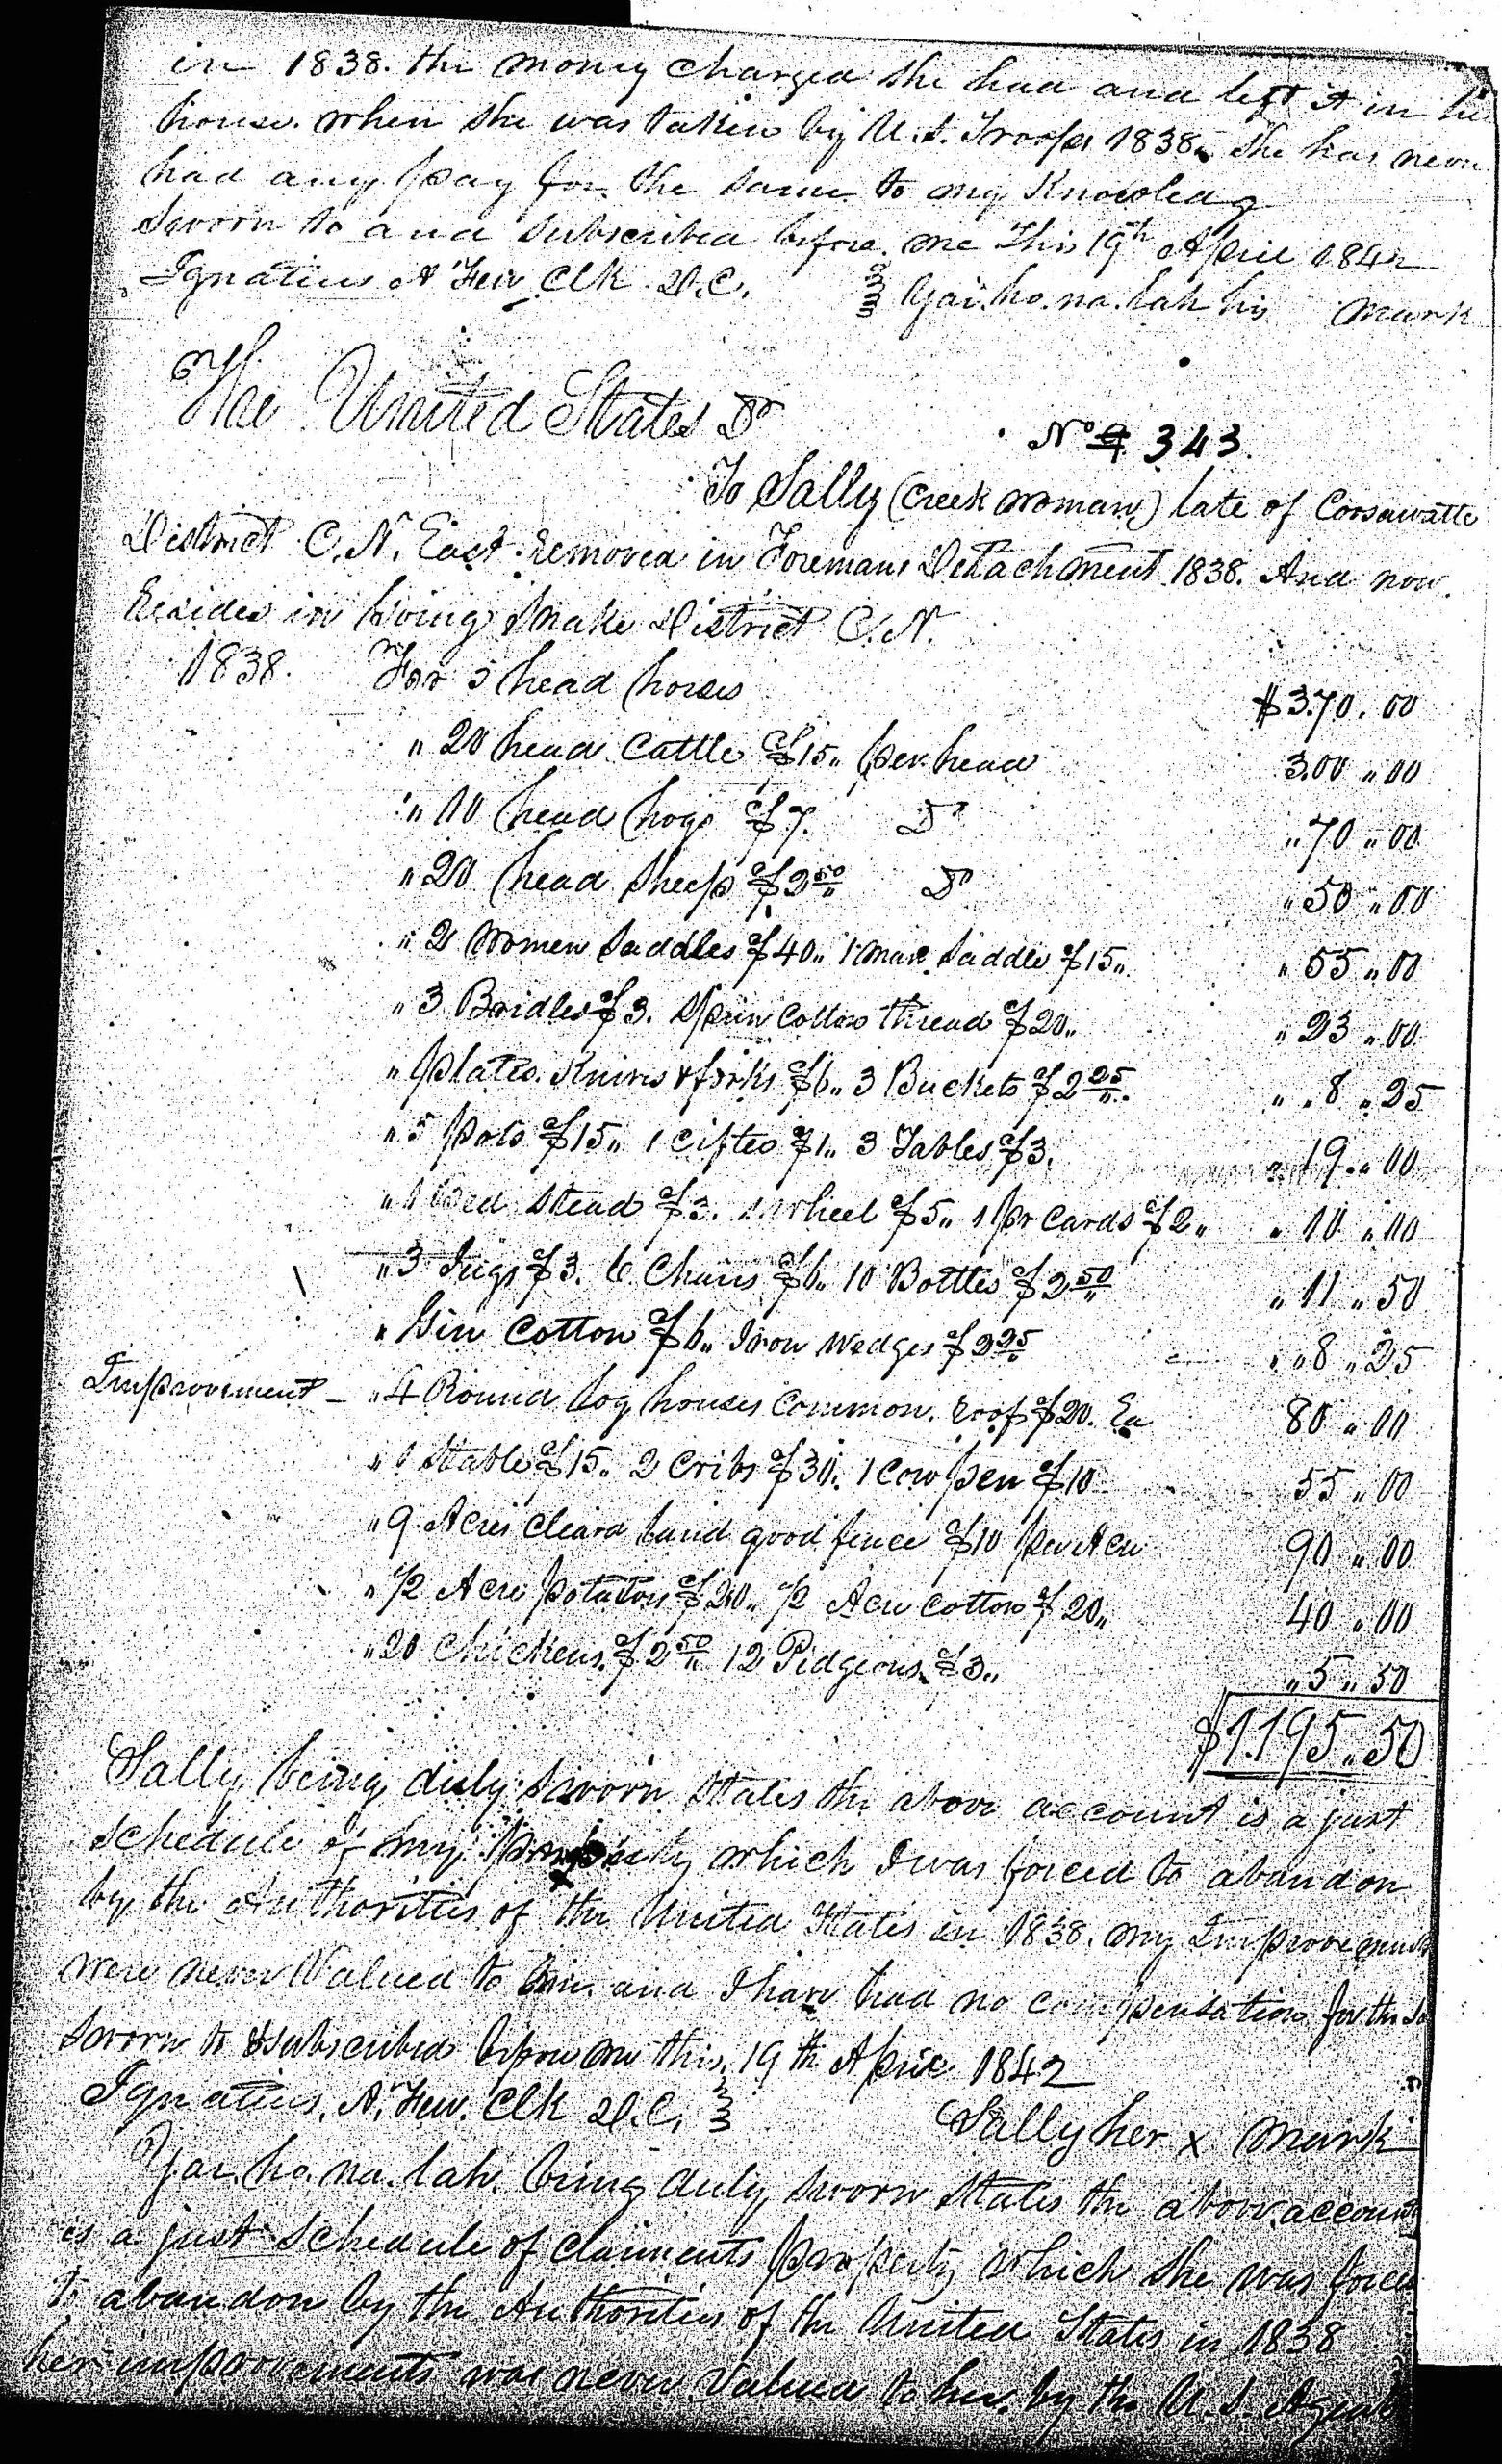 in 1838. the money charged she had and left it in her
house. when she was taken by U.S. Troops 1838. She has never
had any pay for the same to my Knowledg
Sworn to and Subscribed before me This 19th April 1842
Ignatius A Few Clk D.C. Yai.ho.na.lah his mark
The United States Dr
No 343.
To Sally (Creek woman) late of Coosawatte
District C.N. East. Removed in Foremans Detachment 1838. And now
Resides in Going Snake District C.N.
1838. For 5 head horses $370.00
" 20 head Cattle $15" per head 300"00
" 10 head hogs $7. Do "70"00
" 20 head Sheep $2 50 Do "50"00
" 2 Women Saddles $40" 1 man Saddle $15" "55"00
" 3 Bridles $3. Spun Cotton thread $20" "23"00
" plates. Knives & forks $6" 3 Buckets $2 25 " "8"25
" 5 pots $15" 1 Cifter $1" 3 Tables $3. "19"00
" 1 Bed Stead $3. 1 wheel $5" 1 pr Cards $2" "10"00
" 3 Jugs $3. 6 Chairs $6" 10 Bottles $2 50 "11"50
" Gin Cotton $6" Iron Wedges $2 25 " "8"25
Improvement - " 4 Round Log houses Common roof $20. Ea 80"00
" 1 Stable $15" 2 Cribs $30. 1 Cow pen $10 55"00
" 9 Acres Cleard land good fence $10 per Acre 90"00
" 1/2 Acre potatoes $20" 1/2 Acre Cotton $20" 40"00
" 20 Chickens $2 50 12 Pidgions $3" "5"50
$1195"50
Sally being duly sworn States the above account is a just
schedule of my property which I was forced to abandon
by the Authorities of the United States in 1838. my Improvements
were never Valued to me. and I have had no compensation for the Sa
Sworn to & subscribed before me this 19th April 1842
Ignatius. A. Few. Clk D.C. Sally her x mark
Yai.ho.na.lah. being duly sworn States the above account
is a just Schedule of claiments property which she was forced
to abandon by the Authorities of the United States in 1838
her improvements was never Valued to her by the U.S. Agents